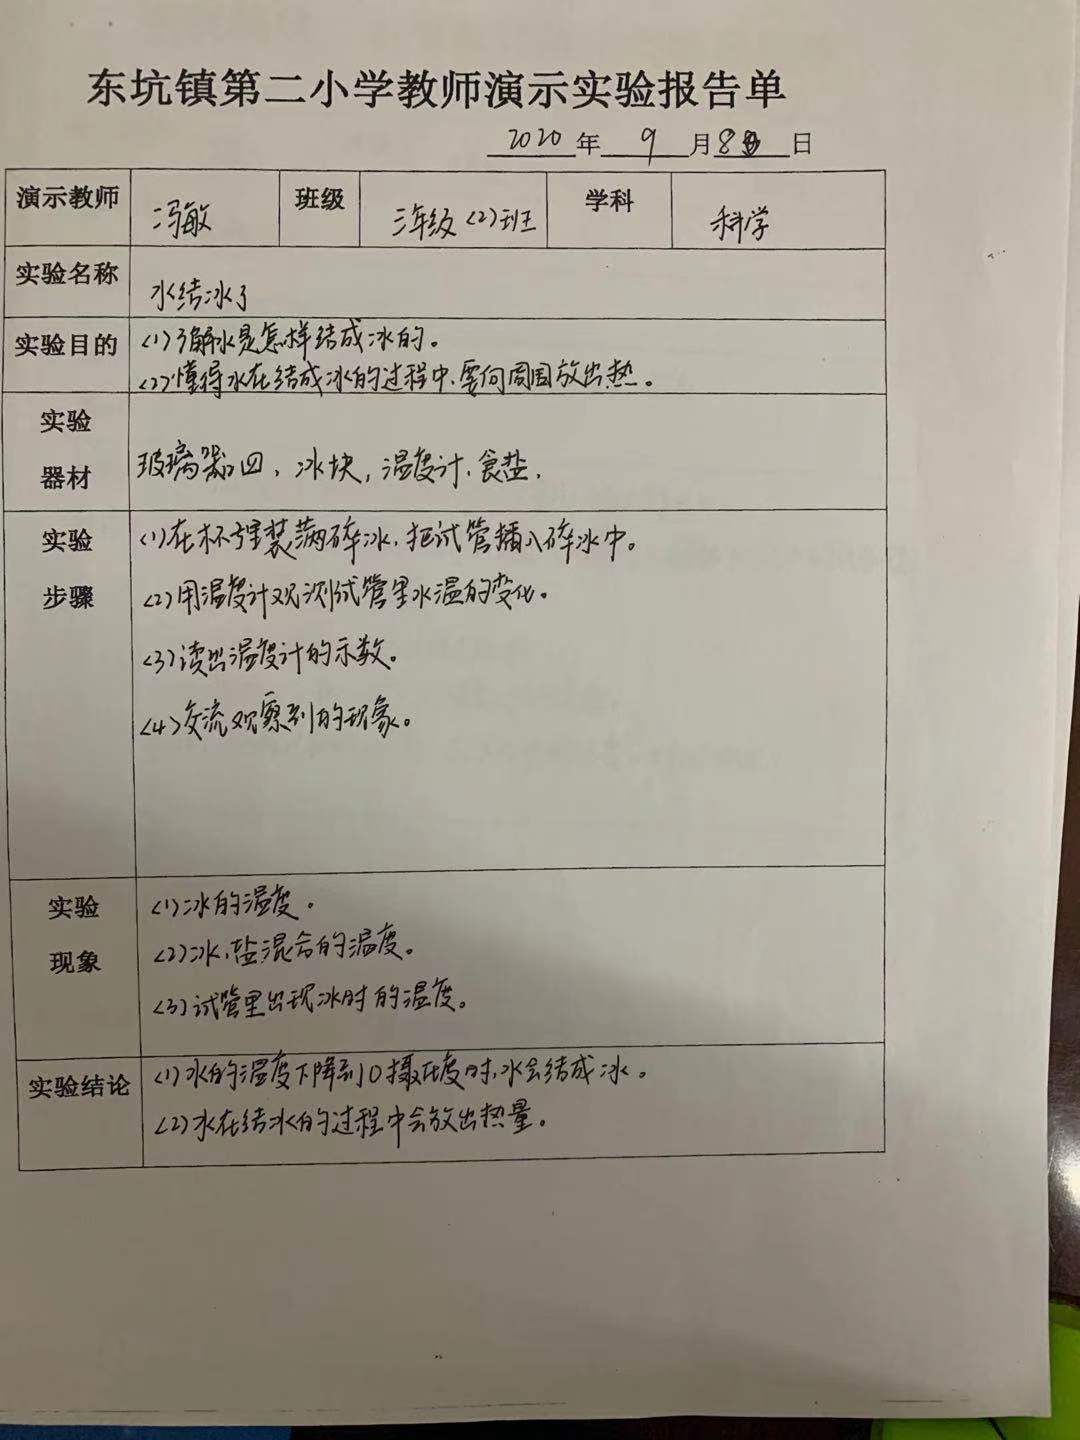 东坑镇第二小学教师演示实验报告单
2020年 9 月8日
演示教师 冯敏 班级 三年级(2)班 学科 科学
实验名称 水结冰了
实验目的 (1)了解水是怎样结成冰的。
(2)懂得水在结成冰的过程中,要向周围放出热。
实验器材 玻璃器皿、冰块,温度计,食盐,
实验步骤 (1)在杯子里装满碎冰,把试管插入碎冰中。
(2)用温度计观测试管里水温的变化。
(3)读出温度计的示数。
(4)交流观察到的现象。
实验现象 (1)冰的温度。
(2)冰,盐混合的温度。
(3)试管里出现冰时的温度。
实验结论 (1)水的温度下降到0摄氏度时,水会结成冰。
(2)水在结冰的过程中会放出热量。